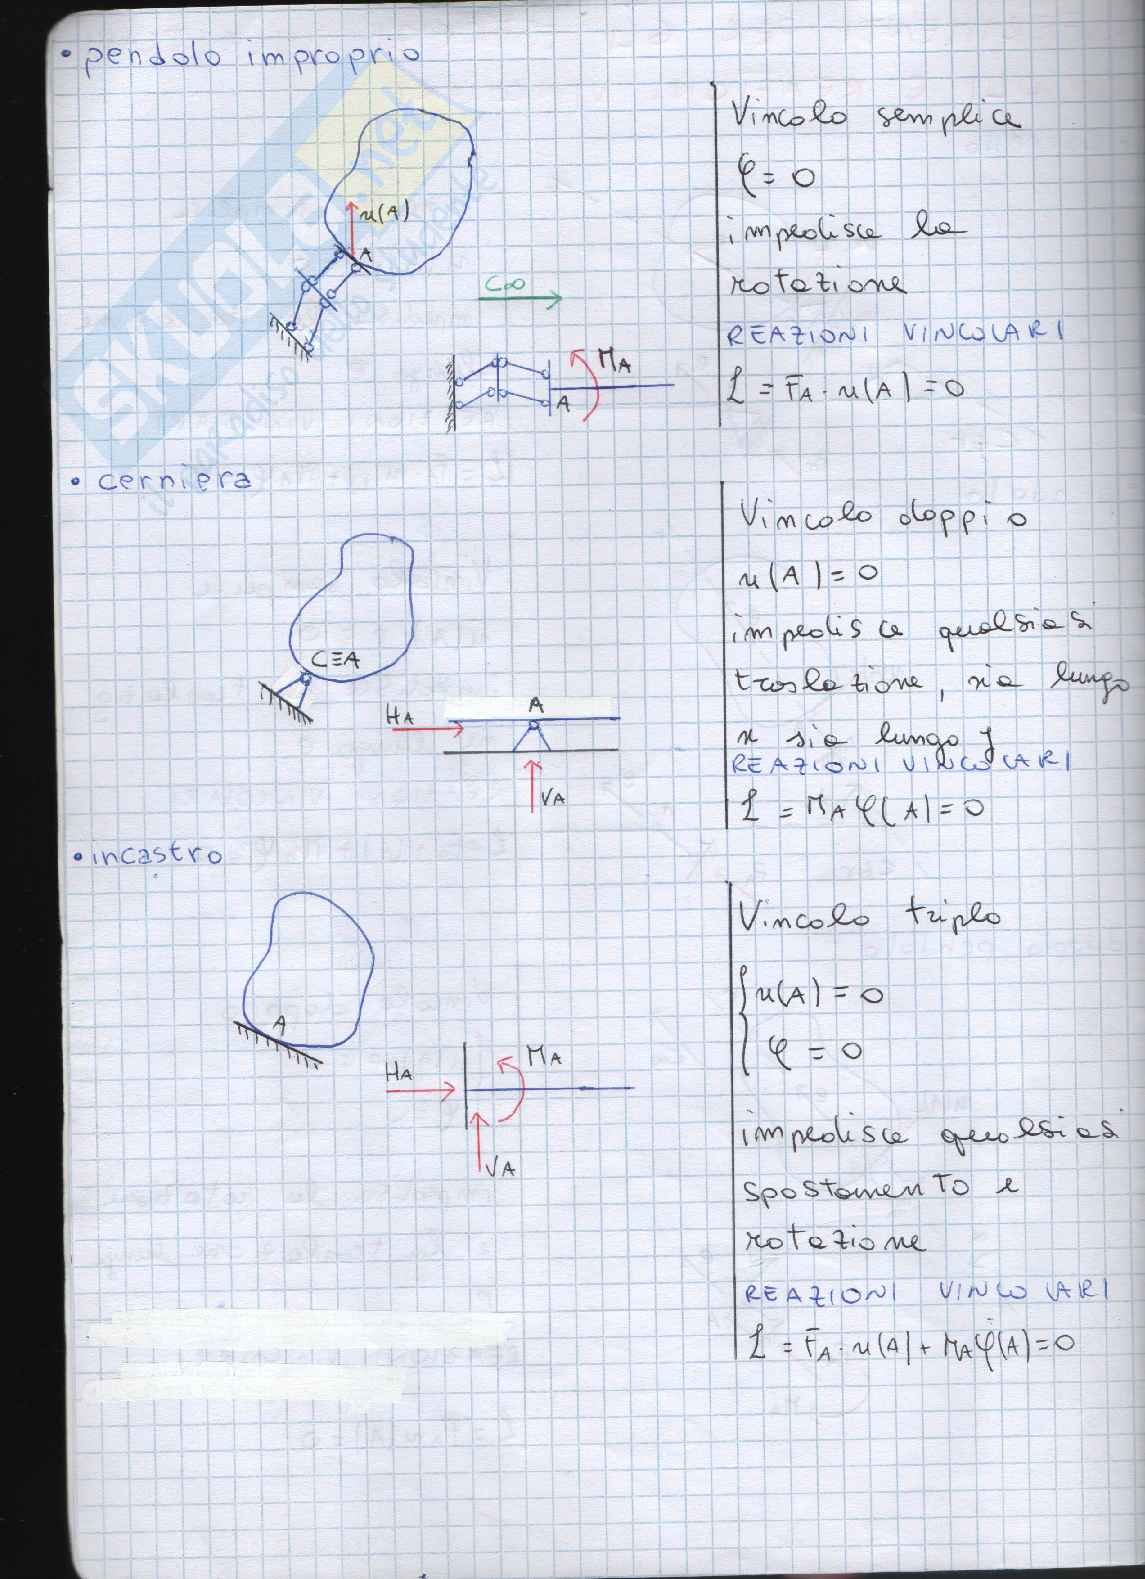 • pendolo improprio
u(A)
A
C∞
MA
A
Vincolo semplice
φ = 0
impedisce la
rotazione
REAZIONI VINCOLARI
L = F̄A · u(A) = 0
• cerniera
C≡A
HA
A
VA
Vincolo doppio
u(A) = 0
impedisce qualsiasi
traslazione, sia lungo
x sia lungo y
REAZIONI VINCOLARI
L = MA φ(A) = 0
• incastro
A
HA
MA
VA
Vincolo triplo
u(A) = 0
φ = 0
impedisce qualsiasi
spostamento e
rotazione
REAZIONI VINCOLARI
L = F̄A · u(A) + MA φ(A) = 0
SKUOLA.net